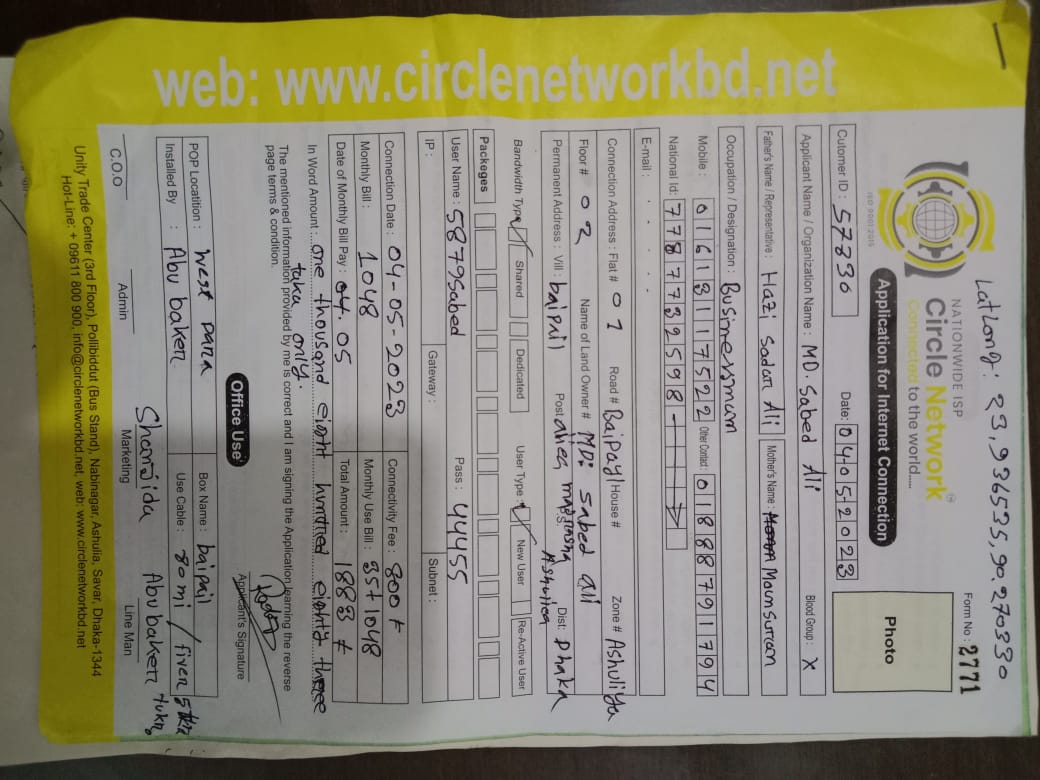 LatLong: 23.936535, 90.270330
NATIONWIDE ISP
Circle Network
Connected to the world....
ISO 9001:2015
Form No : 2771
Application for Internet Connection
Photo
Cutomer ID : 57830
Date: 04 05 2023
Applicant Name / Organization Name : MD. Sabed Ali
Blood Group : X
Father's Name / Representative : Hazi Sadar Ali
Mother's Name :
Occupation / Designation : Businessmam
Mobile : 01613117522
Other Contact : 01888791794
National Id: 7787732598
E-mail :
Connection Address : Flat # 01 Road # Baipayl House # Zone # Ashuliya
Floor # 02 Name of Land Owner # MD: Sabed ali
Permanent Address : Vill : baipail Post : aliea madrasha P.S : Ashuliea Dist: Dhaka
Bandwidth Type Shared Dedicated User Type : New User Re-Active User
Packeges
User Name : 5879Sabed Pass : 44455
IP : Gateway : Subnet :
Connection Date : 04-05-2023 Connectivity Fee : 800 +
Monthly Bill : 1048 Monthly Use Bill : 35+1048
Date of Monthly Bill Pay : 04.05 Total Amount : 1883 +
In Word Amount : one thousand eight hundred eighty threee
taka only.
The mentioned information provided by me is correct and I am signing the Application learning the reverse
page terms & condition.
Applicant's Signature
Office Use
POP Locatition : west para Box Name : baipail
Installed By : Abu baker Use Cable : 80mi / fiver
Sharsida Abu baker
C.O.O Admin Marketing Line Man
Unity Trade Center (3rd Floor), Pollibiddut (Bus Stand), Nabinagar, Ashulia, Savar, Dhaka-1344
Hot-Line: + 09611 800 900, info@circlenetworkbd.net, web: www.circlenetworkbd.net
web: www.circlenetworkbd.net